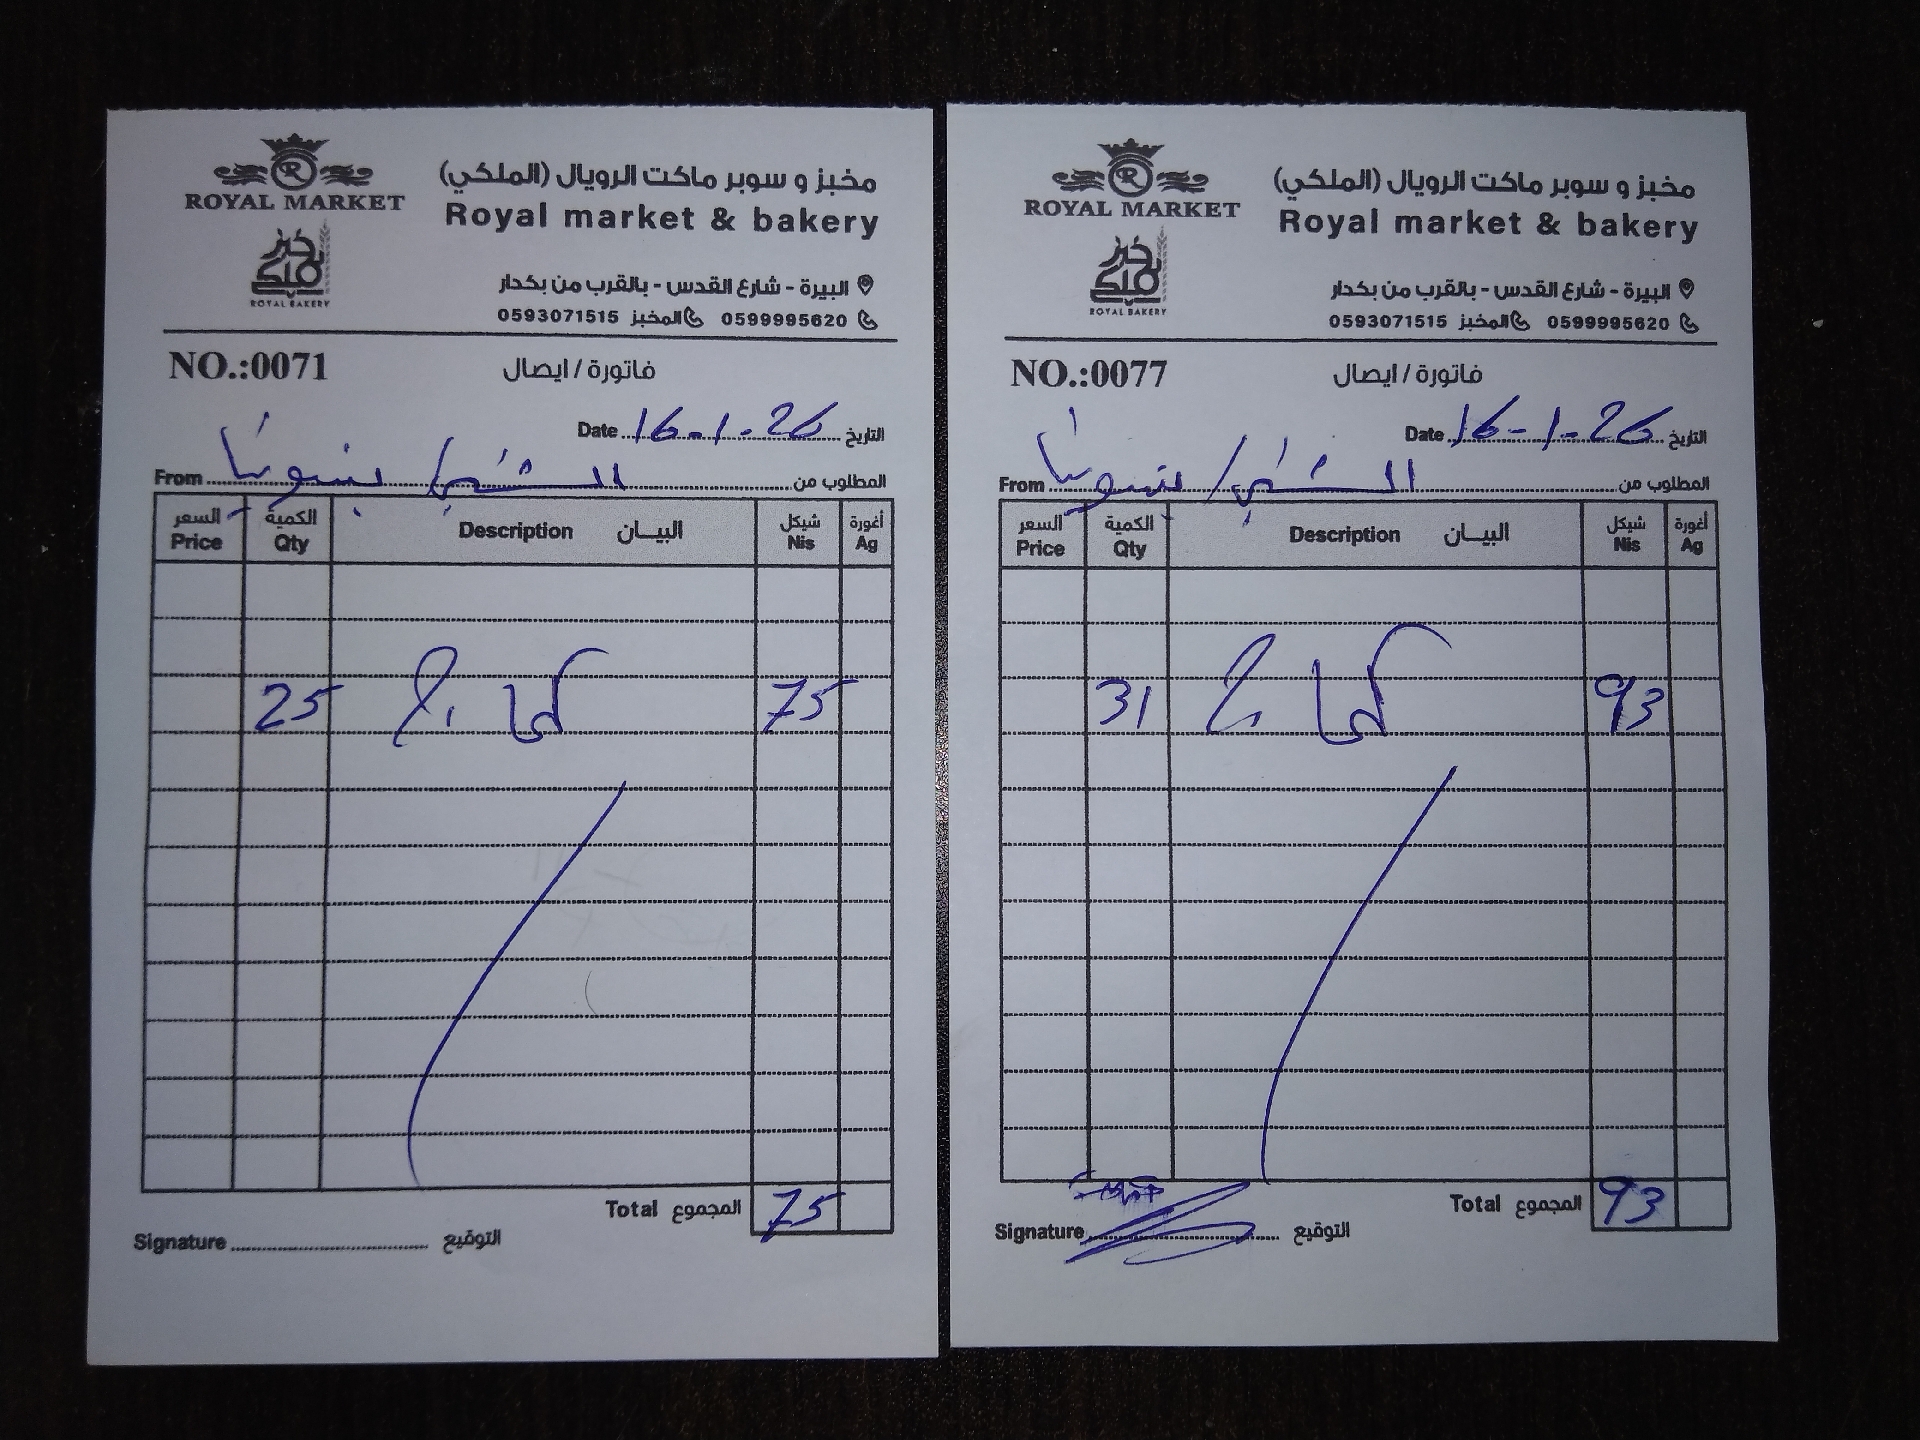 ROYAL MARKET
خبز ملكي
ROYAL BAKERY
مخبز و سوبر ماكت الرويال (الملكي)
Royal market & bakery
البيرة - شارع القدس - بالقرب من بكدار
0599995620 المخبز 0593071515
NO.:0071 فاتورة / ايصال
Date 16-1-26 التاريخ
From المطلوب من
السعر الكمية البيـــان شيكل أغورة
Price Qty Description Nis Ag
25 كماج 75
Total المجموع 75
Signature التوقيع
ROYAL MARKET
خبز ملكي
ROYAL BAKERY
مخبز و سوبر ماكت الرويال (الملكي)
Royal market & bakery
البيرة - شارع القدس - بالقرب من بكدار
0599995620 المخبز 0593071515
NO.:0077 فاتورة / ايصال
Date 16-1-26 التاريخ
From المطلوب من
السعر الكمية البيـــان شيكل أغورة
Price Qty Description Nis Ag
31 كماج 93
Total المجموع 93
Signature التوقيع